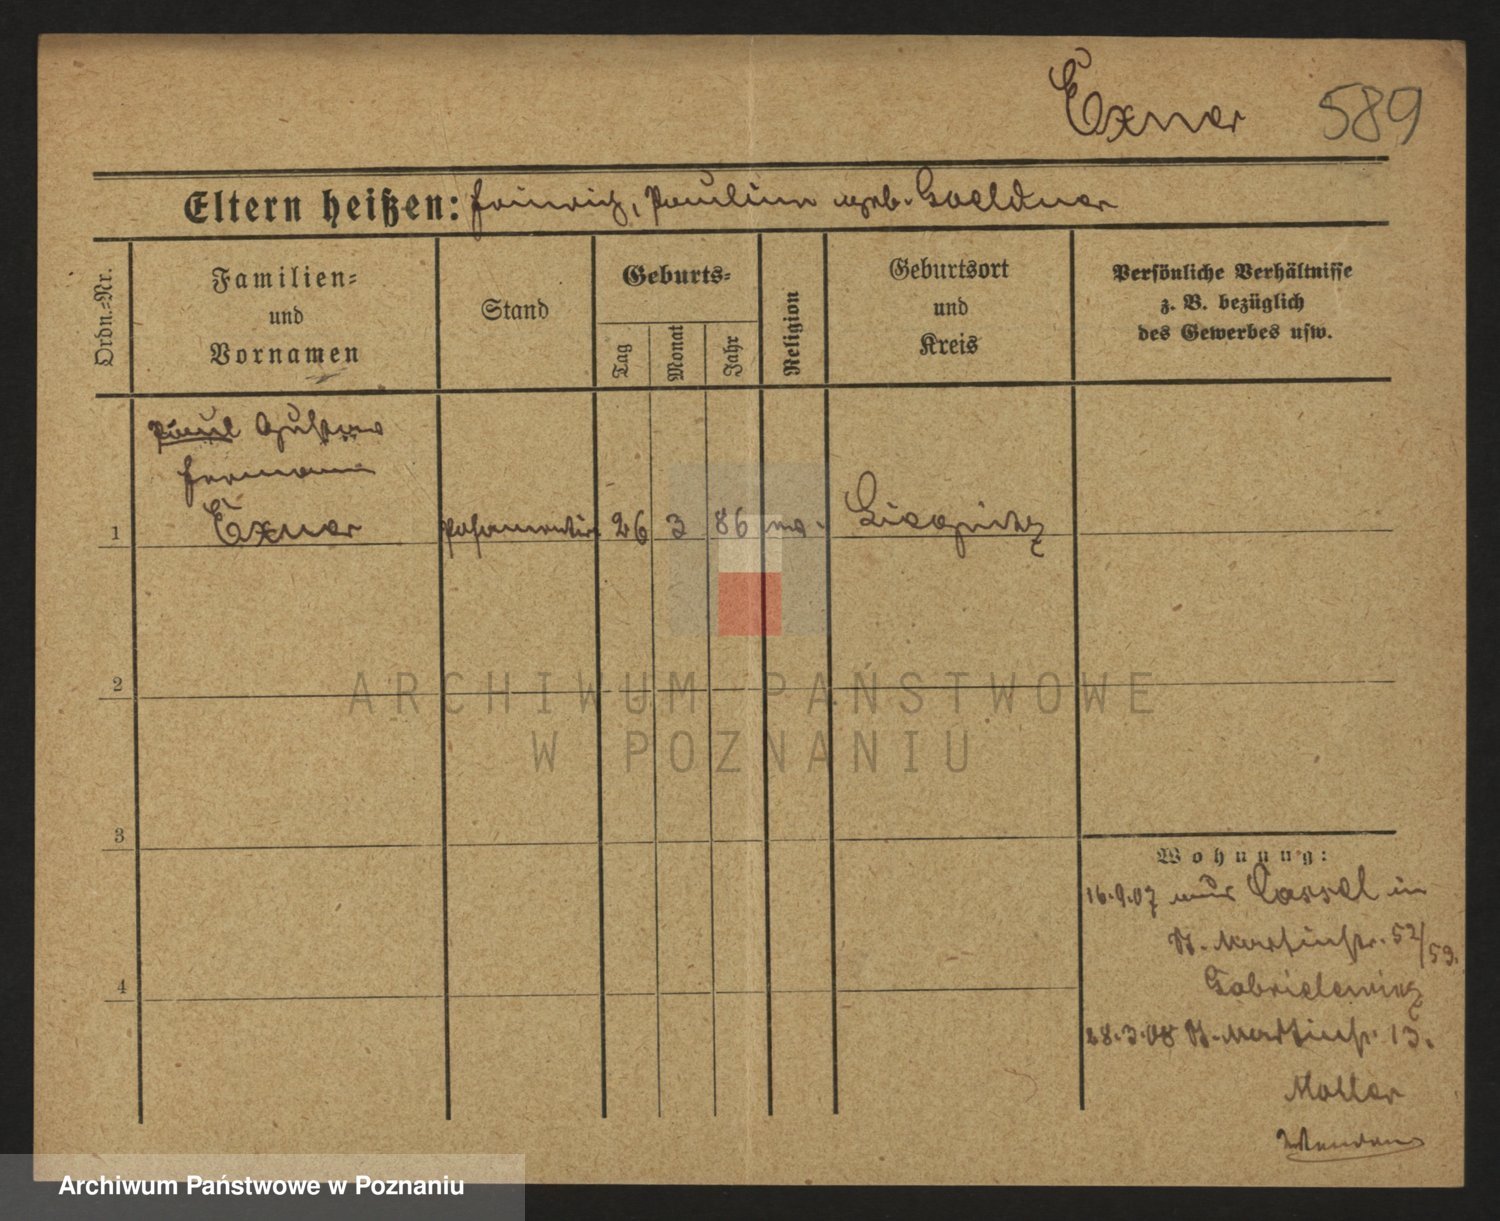 Exner 589
Eltern heißen: Heinrich, Pauline geb. Goeldner
Ordn.-Nr.
Familien-
und
Vornamen
Stand
Geburts-
Tag
Monat
Jahr
Religion
Geburtsort
und
Kreis
Persönliche Verhältnisse
z. B. bezüglich
des Gewerbes usw.
Paul Gustav
Hermann
Exner
1 26 3 86
2
3
4
Wohnung:
16.9.07 aus Cassel in
St. Martinstr. 52/53.
Gabrielewicz
28.3.08 St. Martinstr. 13.
ARCHIWUM PAŃSTWOWE
W POZNANIU
Archiwum Państwowe w Poznaniu